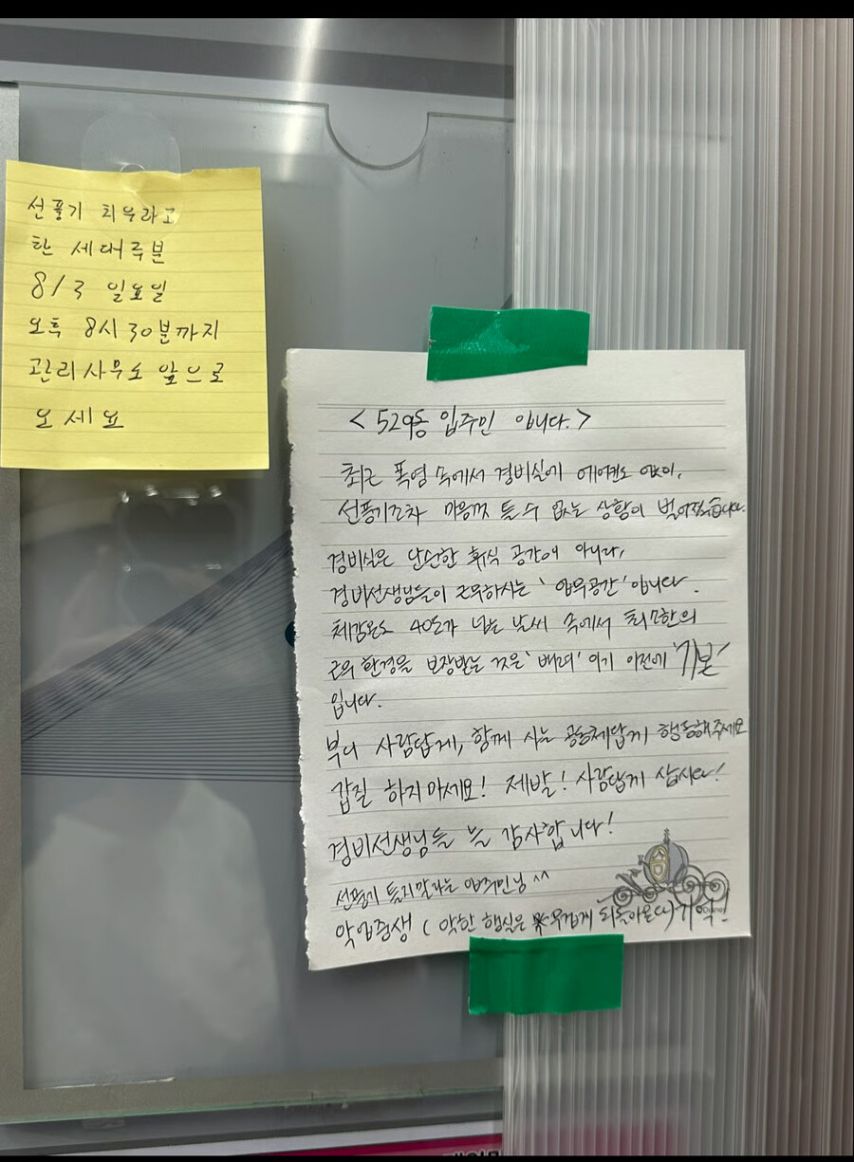 선풍기 치우라고
한 세대주분
8/3 일요일
오후 8시 30분까지
관리사무소 앞으로
오세요
<529동 입주민 입니다.>
최근 폭염 속에서 경비실에 에어컨도 없이,
선풍기조차 마음껏 틀 수 없는 상황이 벌어졌습니다.
경비실은 단순한 휴식 공간이 아니라,
경비선생님들이 근무하시는 '업무공간' 입니다.
체감온도 40도가 넘는 날씨 속에서 최소한의
근무 환경을 보장받는 것은 '배려' 이기 이전에 '기본'
입니다.
부디 사람답게, 함께 사는 공동체답게 행동해주세요
갑질 하지마세요! 제발! 사람답게 삽시다!
경비선생님들 늘 감사합니다!
선풍기 틀지말라는 입주민님 ^^
악업중생 ( 악한 행실은 무겁게 되돌아온다) 기억!